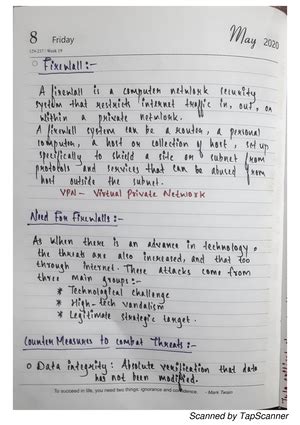 8 Friday
May 2020
129-237 / Week 19
Firewall :-
A firewall is a computer network security
system that restricts internet traffic in, out, or
within a private network.
A firewall system can be a router, a personal
computer, a host or collection of host, set up
specifically to shield a site or subnet from
protocols and services that can be abused from
host outside the subnet.
VPN - Virtual Private Network
Need For Firewalls :-
As when there is an advance in technology,
the threats are also increased, and that too
through internet. These attacks come from
three main groups :-
* Technological challenge
* High-tech vandalism
* Legitimate strategic target.
Counter Measures to combat Threats :-
o Data integrity : Absolute verification that data
has not been modified.
To succeed in life, you need two things: ignorance and confidence. - Mark Twain
Scanned by TapScanner